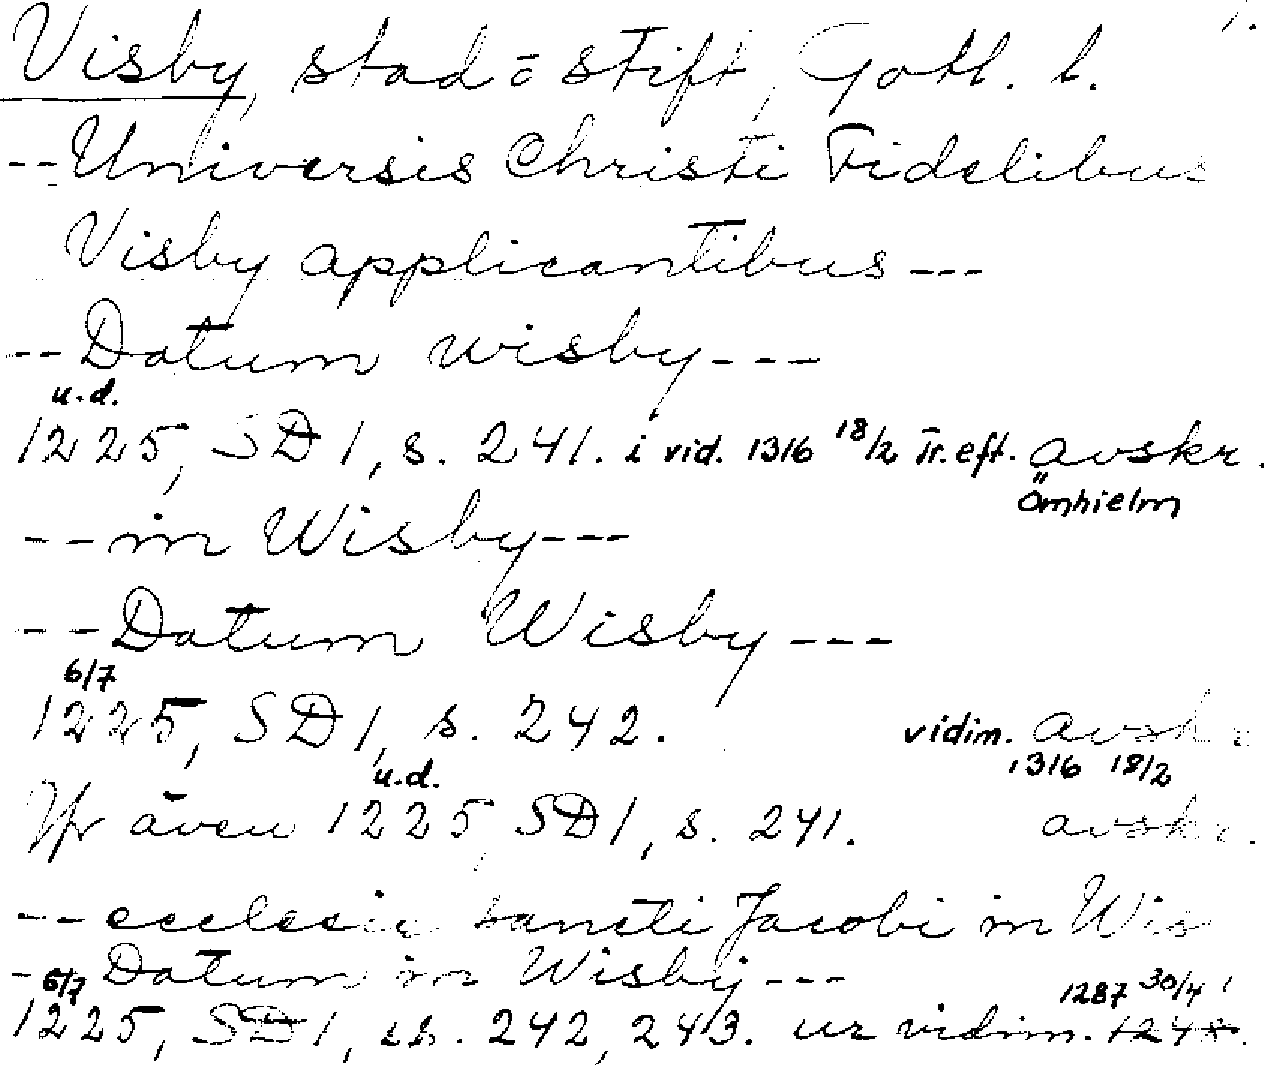 1.
Visby, stad o stift, Gotl. l.
-- Universis Christi Fidelibus
Visby applicantibus ---
-- Datum wisby ---
u.d.
1225, SD 1, s. 241. i vid. 1316 18/2 Tr. eft. avskr.
Örnhielm
-- in Wisby ---
-- Datum Wisby ---
6/7
1225, SD 1, s. 242. vidim. avskr.
1316 18/2
u.d.
Jfr även 1225, SD 1, s. 241. avskr.
-- ecclesie sancti Jacobi in Wis
- Datum in Wisby ---
6/7 1287 30/4
1225, SD 1, ss. 242, 243. ur vidim. 1248.